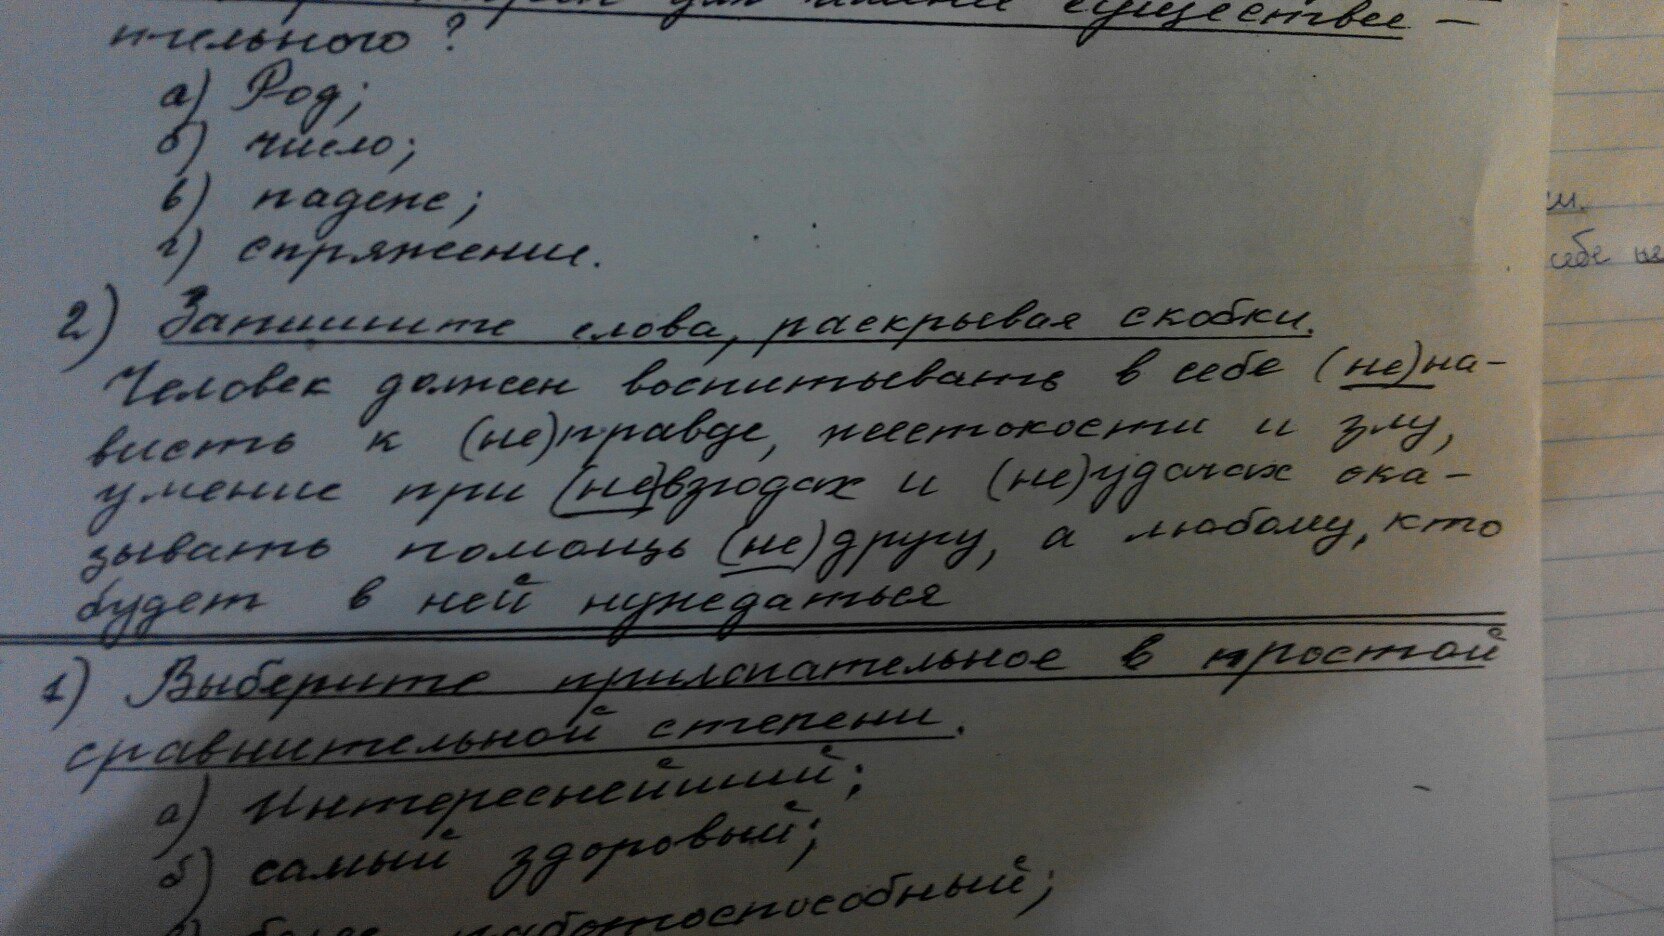 для имени существи-
тельного?
а) Род;
б) число;
в) падеж;
г) спряжение.
2) Запишите слова, раскрывая скобки.
Человек должен воспитывать в себе (не)на-
висть к (не)правде, жестокости и злу,
умение при (не)взгодах и (не)удачах ока-
зывать помощь (не)другу, а любому, кто
будет в ней нуждаться
1) Выберите прилагательное в простой
сравнительной степени.
а) Интереснейший;
б) самый здоровый;
в) более работоспособный;
себе не